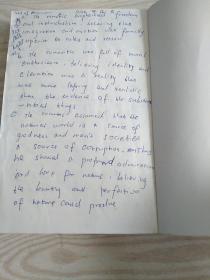 The romantic emphasized freedom
and individualism, believing that
imagination and emotion was
superior to rules and reason
b. The romantic was full of moral
enthusiasm, believing ideality and
elevation was a reality that
was more lasting and realistic
than the evidence of the substan
-tial things
c. The romantic assumed that the
natural world is a source of
goodness and man's societies
a source of corruption,
he showed a profound admiration
and love for nature, believing
the beauty and perfection
of nature could produce